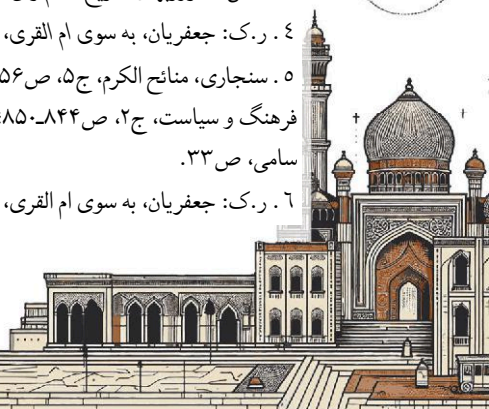 ٤ . ر.ک: جعفریان، به سوی ام القری،
٥ . سنجاری، منائح الکرم، ج۵، ص۵۶
فرهنگ و سیاست، ج۲، ص۸۴۴ـ۸۵۰؛
سامی، ص۳۳.
٦ . ر.ک: جعفریان، به سوی ام القری،